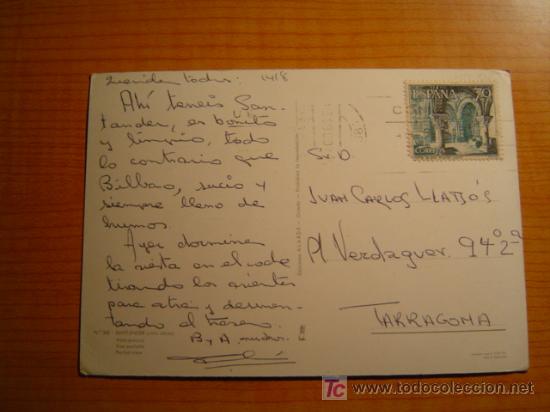 Queridos todos: 14/8
Ahí teneis San-
tander, es bonito
y limpio, todo
lo contrario que
Bilbao, sucio y
siempre lleno de
humos.
Ayer dormimos
la siesta en el coche
tirando los asientos
para atrás y
el trasero.
B y A muchos.
ESPAÑA
CORREOS
Sr. D.
JUAN CARLOS LLATJÓS
Pl. Verdaguer. 9 4º 2ª
TARRAGONA
todocoleccion
www.todocoleccion.net